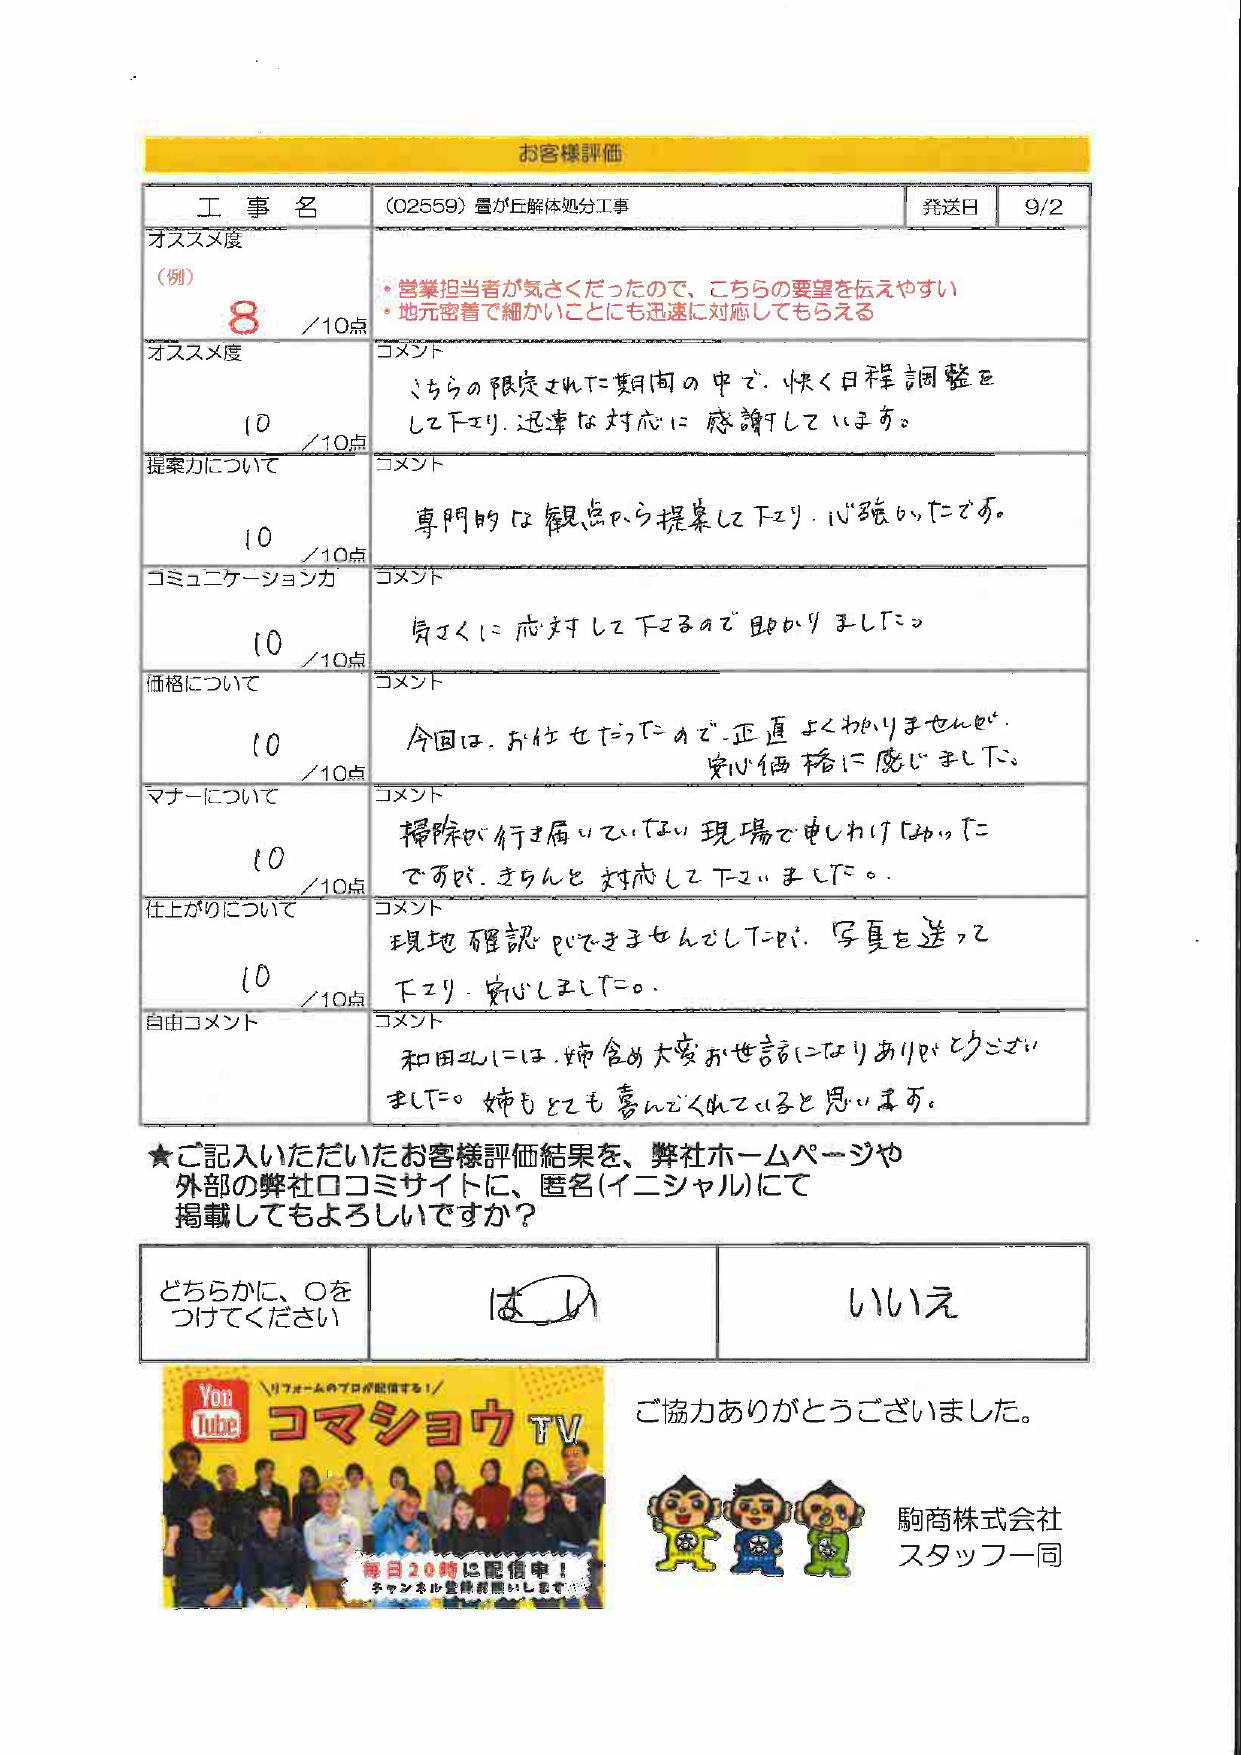 お客様評価
工 事 名
(02559) 畳が丘解体処分工事
発送日
9/2
オススメ度
(例)
8
/10点
・営業担当者が気さくだったので、こちらの要望を伝えやすい
・地元密着で細かいことにも迅速に対応してもらえる
オススメ度
10
/10点
コメント
こちらの限定された期間の中で、快く日程調整を
して下さり、迅速な対応に感謝しています。
提案力について
10
/10点
コメント
専門的な観点から提案して下さり、心強かったです。
コミュニケーション力
10
/10点
コメント
気さくに応対して下さるので助かりました。
価格について
10
/10点
コメント
今回は、お任せだったので、正直よくわかりませんが、
安心価格に感じました。
マナーについて
10
/10点
コメント
掃除が行き届いていない現場で申しわけなかった
ですが、きちんと対応して下さいました。
仕上がりについて
10
/10点
コメント
現地確認ができませんでしたが、写真を送って
下さり、安心しました。
自由コメント
コメント
和田さんには、姉含め大変お世話になりありがとうござい
ました。姉もとても喜んでくれていると思います。
★ご記入いただいたお客様評価結果を、弊社ホームページや
外部の弊社口コミサイトに、匿名(イニシャル)にて
掲載してもよろしいですか?
どちらかに、〇を
つけてください
はい
いいえ
You
Tube
\リフォームのプロが配信する!/
コマショウTV
毎日20時に配信中!
チャンネル登録お願いします
ご協力ありがとうございました。
駒商株式会社
スタッフ一同